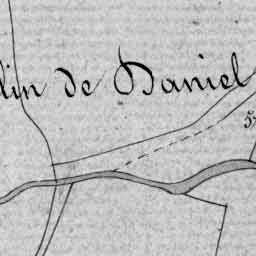 lin de Daniel